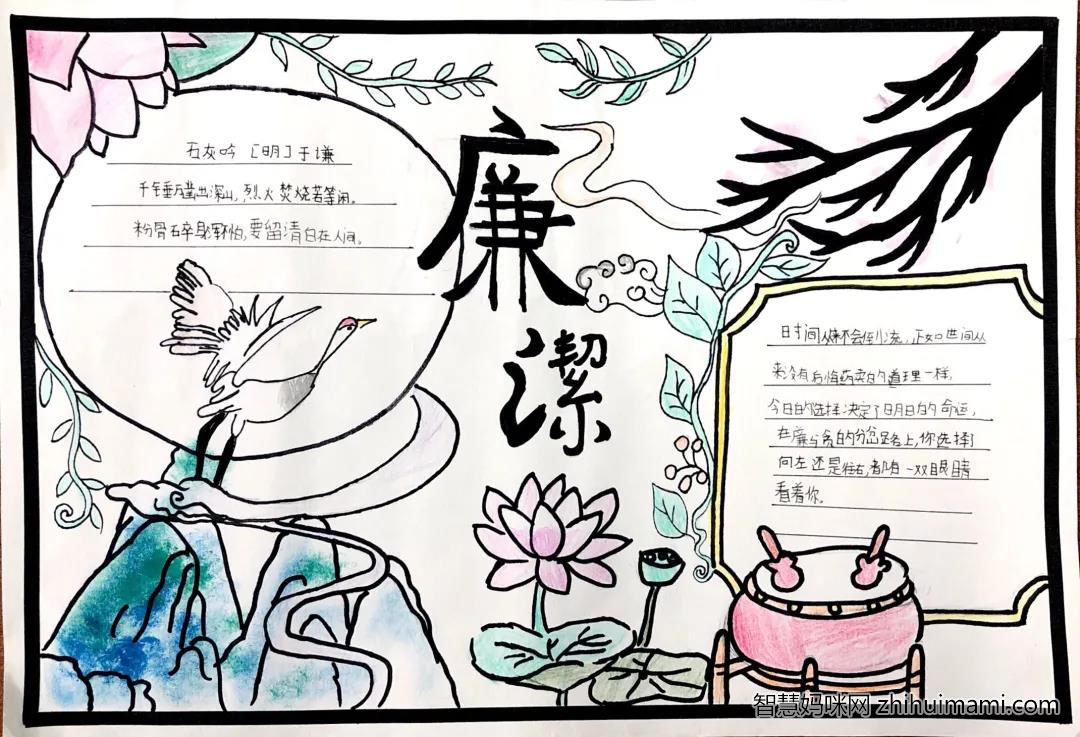 石灰吟 [明]于谦
千锤万凿出深山,烈火焚烧若等闲。
粉骨碎身浑不怕,要留清白在人间。
廉
洁
时间从来不会倒流,正如世间从
来没有后悔药卖的道理一样,
今日的选择决定了明日的命运,
在廉与贪的分岔路上,你选择
向左还是往右,都有一双眼睛
看着你。
智慧妈咪网 zhihuimami.com